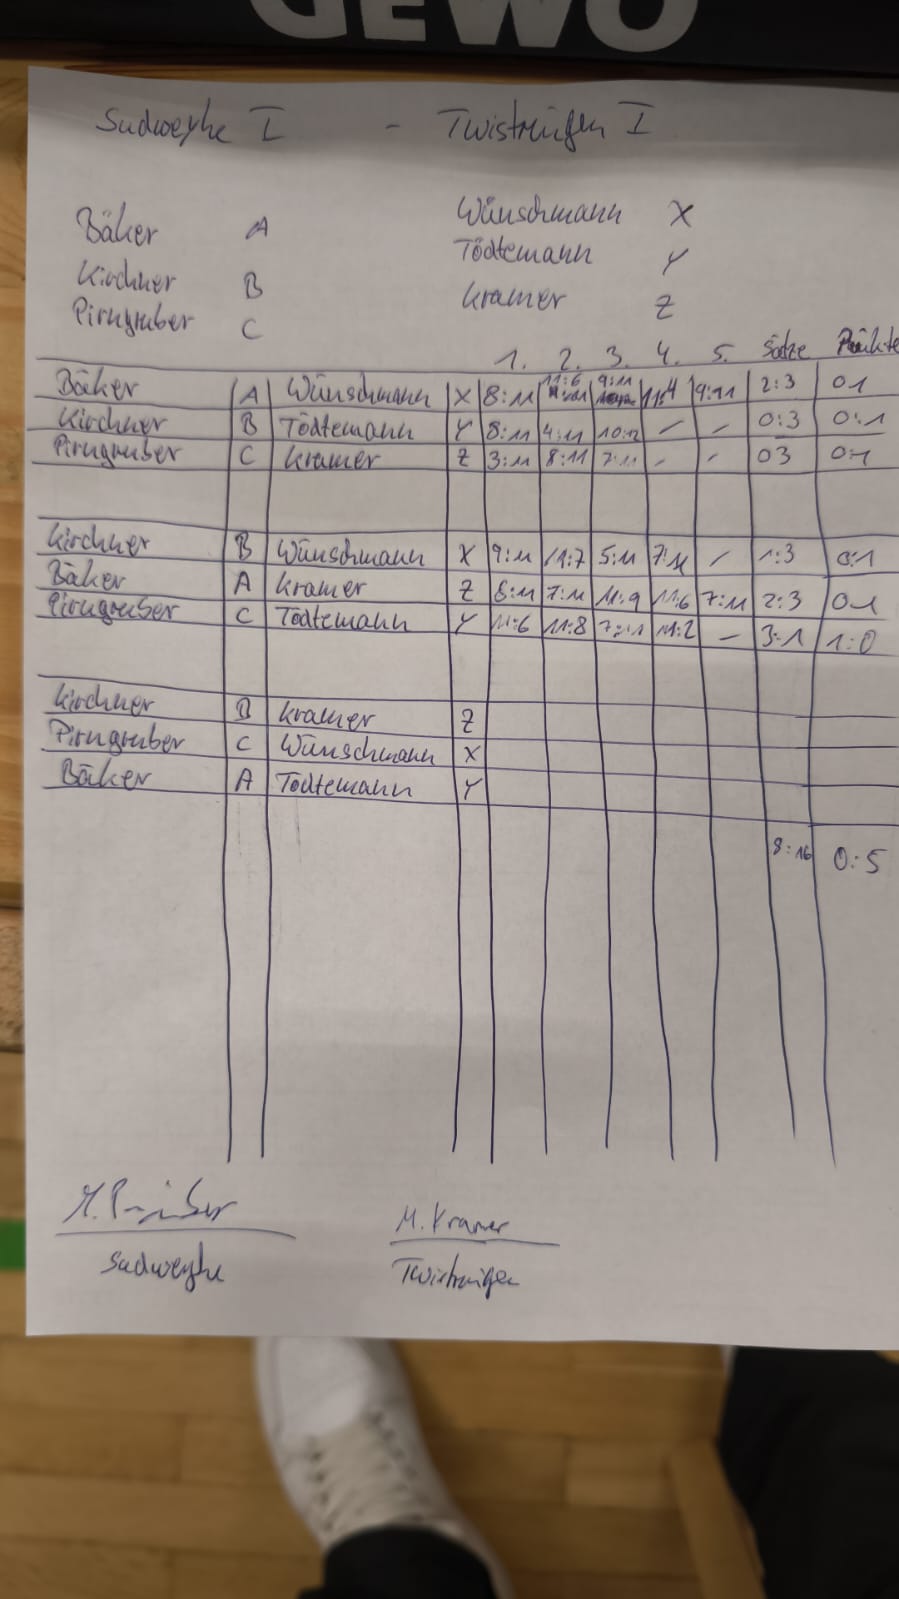 GEWO
Sudweyhe I - Twistringen I
Bäker A Wünschmann X
Kirchner B Tödtemann Y
Pirngruber C Kramer Z
1. 2. 3. 4. 5. Sätze Punkte
Bäker A Wünschmann X 8:11 11:6 9:11 11:4 9:11 2:3 0:1
Kirchner B Tödtemann Y 8:11 4:11 10:12 - - 0:3 0:1
Pirngruber C Kramer Z 3:11 8:11 7:11 - - 0:3 0:1
Kirchner B Wünschmann X 9:11 11:7 5:11 7:11 - 1:3 0:1
Bäker A Kramer Z 8:11 7:11 11:9 11:6 7:11 2:3 0:1
Pirngruber C Tödtemann Y 11:6 11:8 7:11 11:2 - 3:1 1:0
Kirchner B Kramer Z
Pirngruber C Wünschmann X
Bäker A Tödtemann Y
8:16 0:5
M. Kramer
Sudweyhe Twistringen